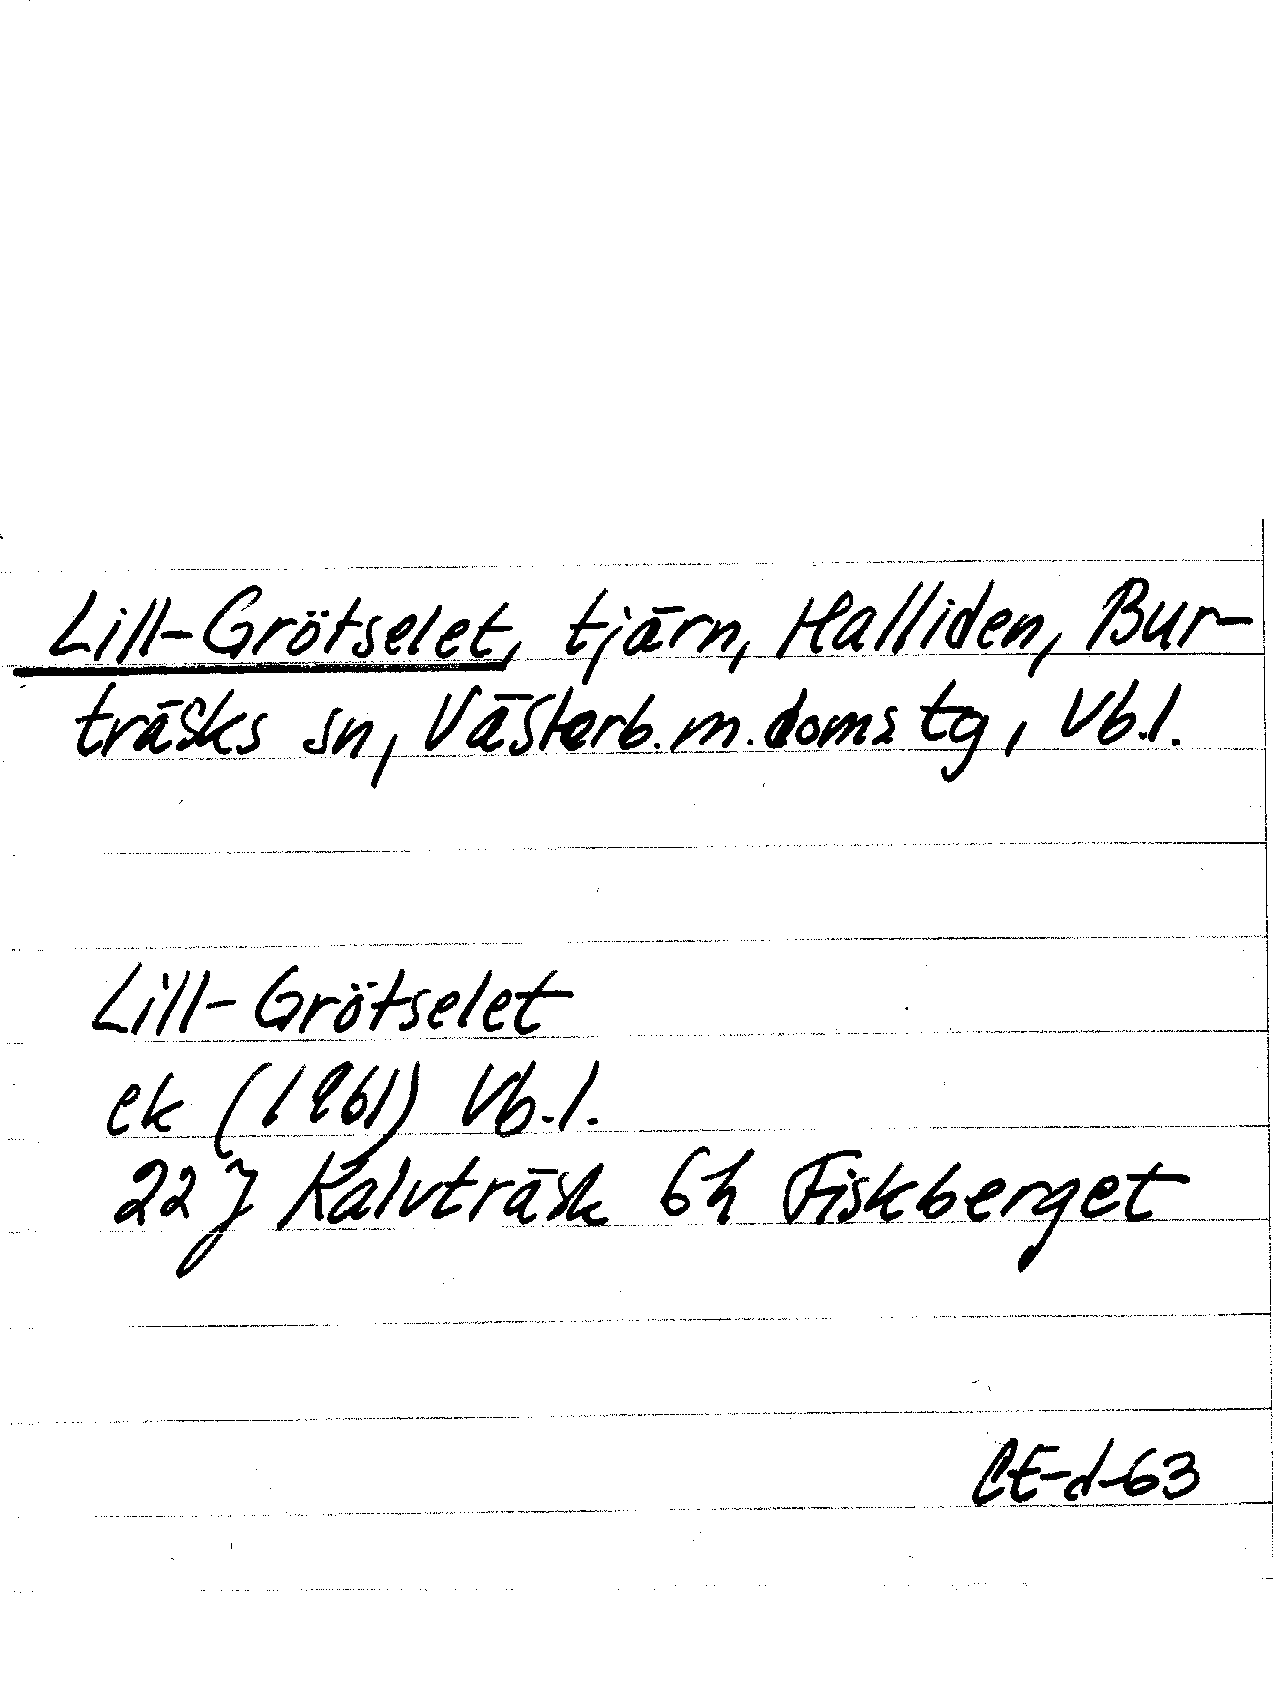 Lill-Grötselet, tjärn, Halliden, Bur-
träsks sn, Västerb.m.domstg, Vb.l.
Lill-Grötselet
ek (1961) Vb.l.
22 J Kalvträsk 6h Fiskberget
CE-d-63